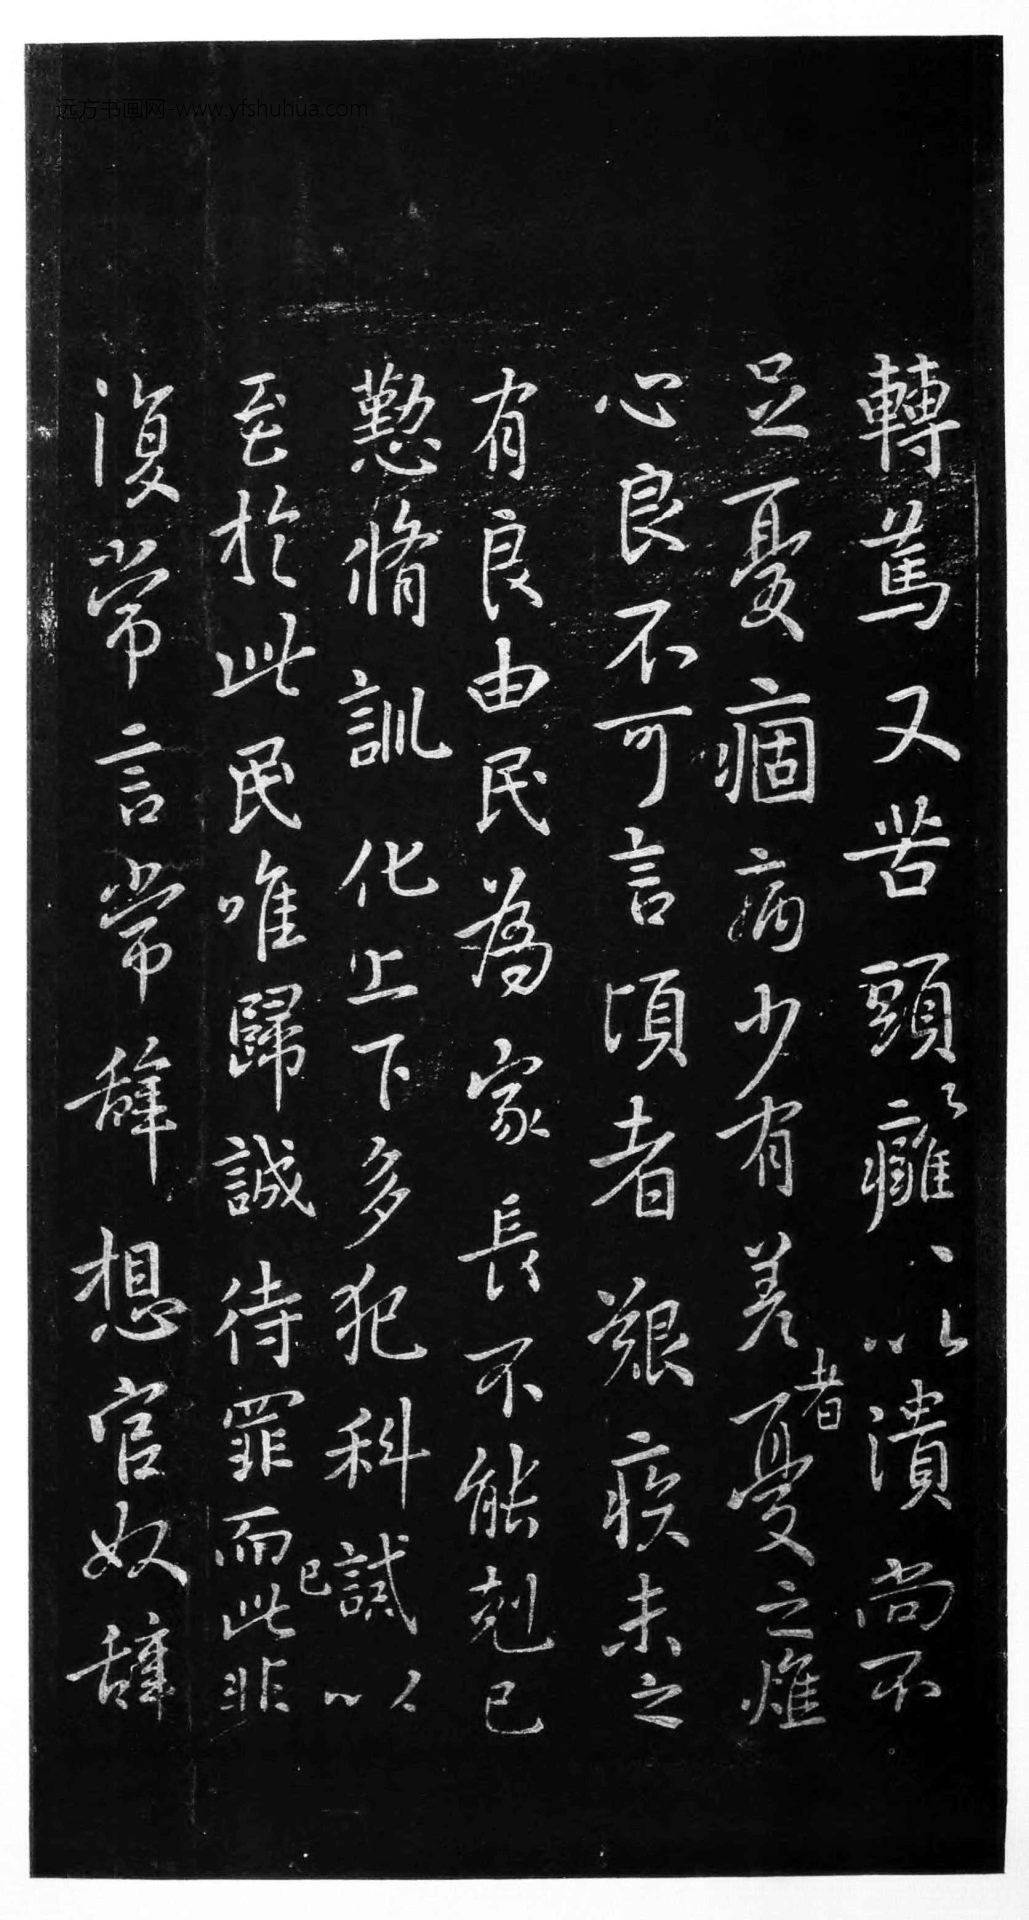 远方书画网-www.yfshuhua.com
轉篤又苦頭癰頭癰以潰尚不
足憂痼病少有差者憂之燋
心良不可言頃者艱疾未之
有良由民為家長不能剋己
懃脩訓化上下多犯科誡以
至於此民唯歸誠待罪而此非
復常言常辭想官奴辭
已